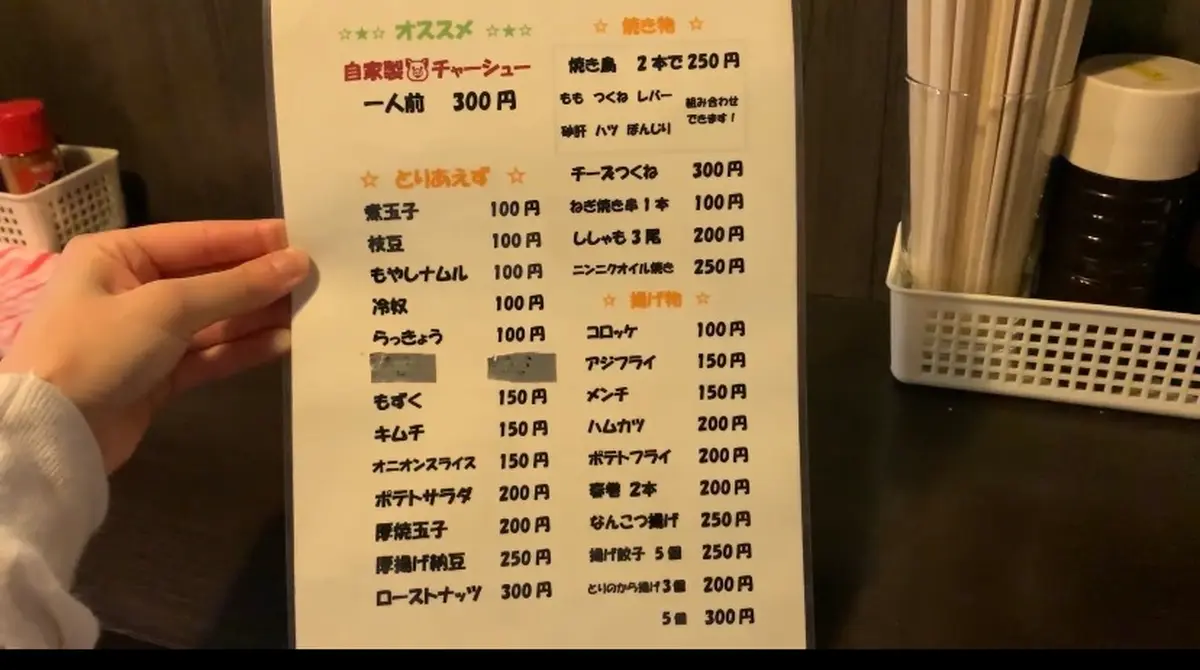 ☆★☆ オススメ ☆★☆
自家製チャーシュー
一人前 300円
☆ とりあえず ☆
煮玉子 100円
枝豆 100円
もやしナムル 100円
冷奴 100円
らっきょう 100円
もずく 150円
キムチ 150円
オニオンスライス 150円
ポテトサラダ 200円
厚焼玉子 200円
厚揚げ納豆 250円
ローストナッツ 300円
☆ 焼き物 ☆
焼き鳥 2本で250円
もも つくね レバー
砂肝 ハツ ぼんじり
組み合わせ
できます！
チーズつくね 300円
ねぎ焼き串1本 100円
ししゃも3尾 200円
ニンニクオイル焼き 250円
☆ 揚げ物 ☆
コロッケ 100円
アジフライ 150円
メンチ 150円
ハムカツ 200円
ポテトフライ 200円
春巻 2本 200円
なんこつ揚げ 250円
揚げ餃子 5個 250円
とりのから揚げ3個 200円
5個 300円